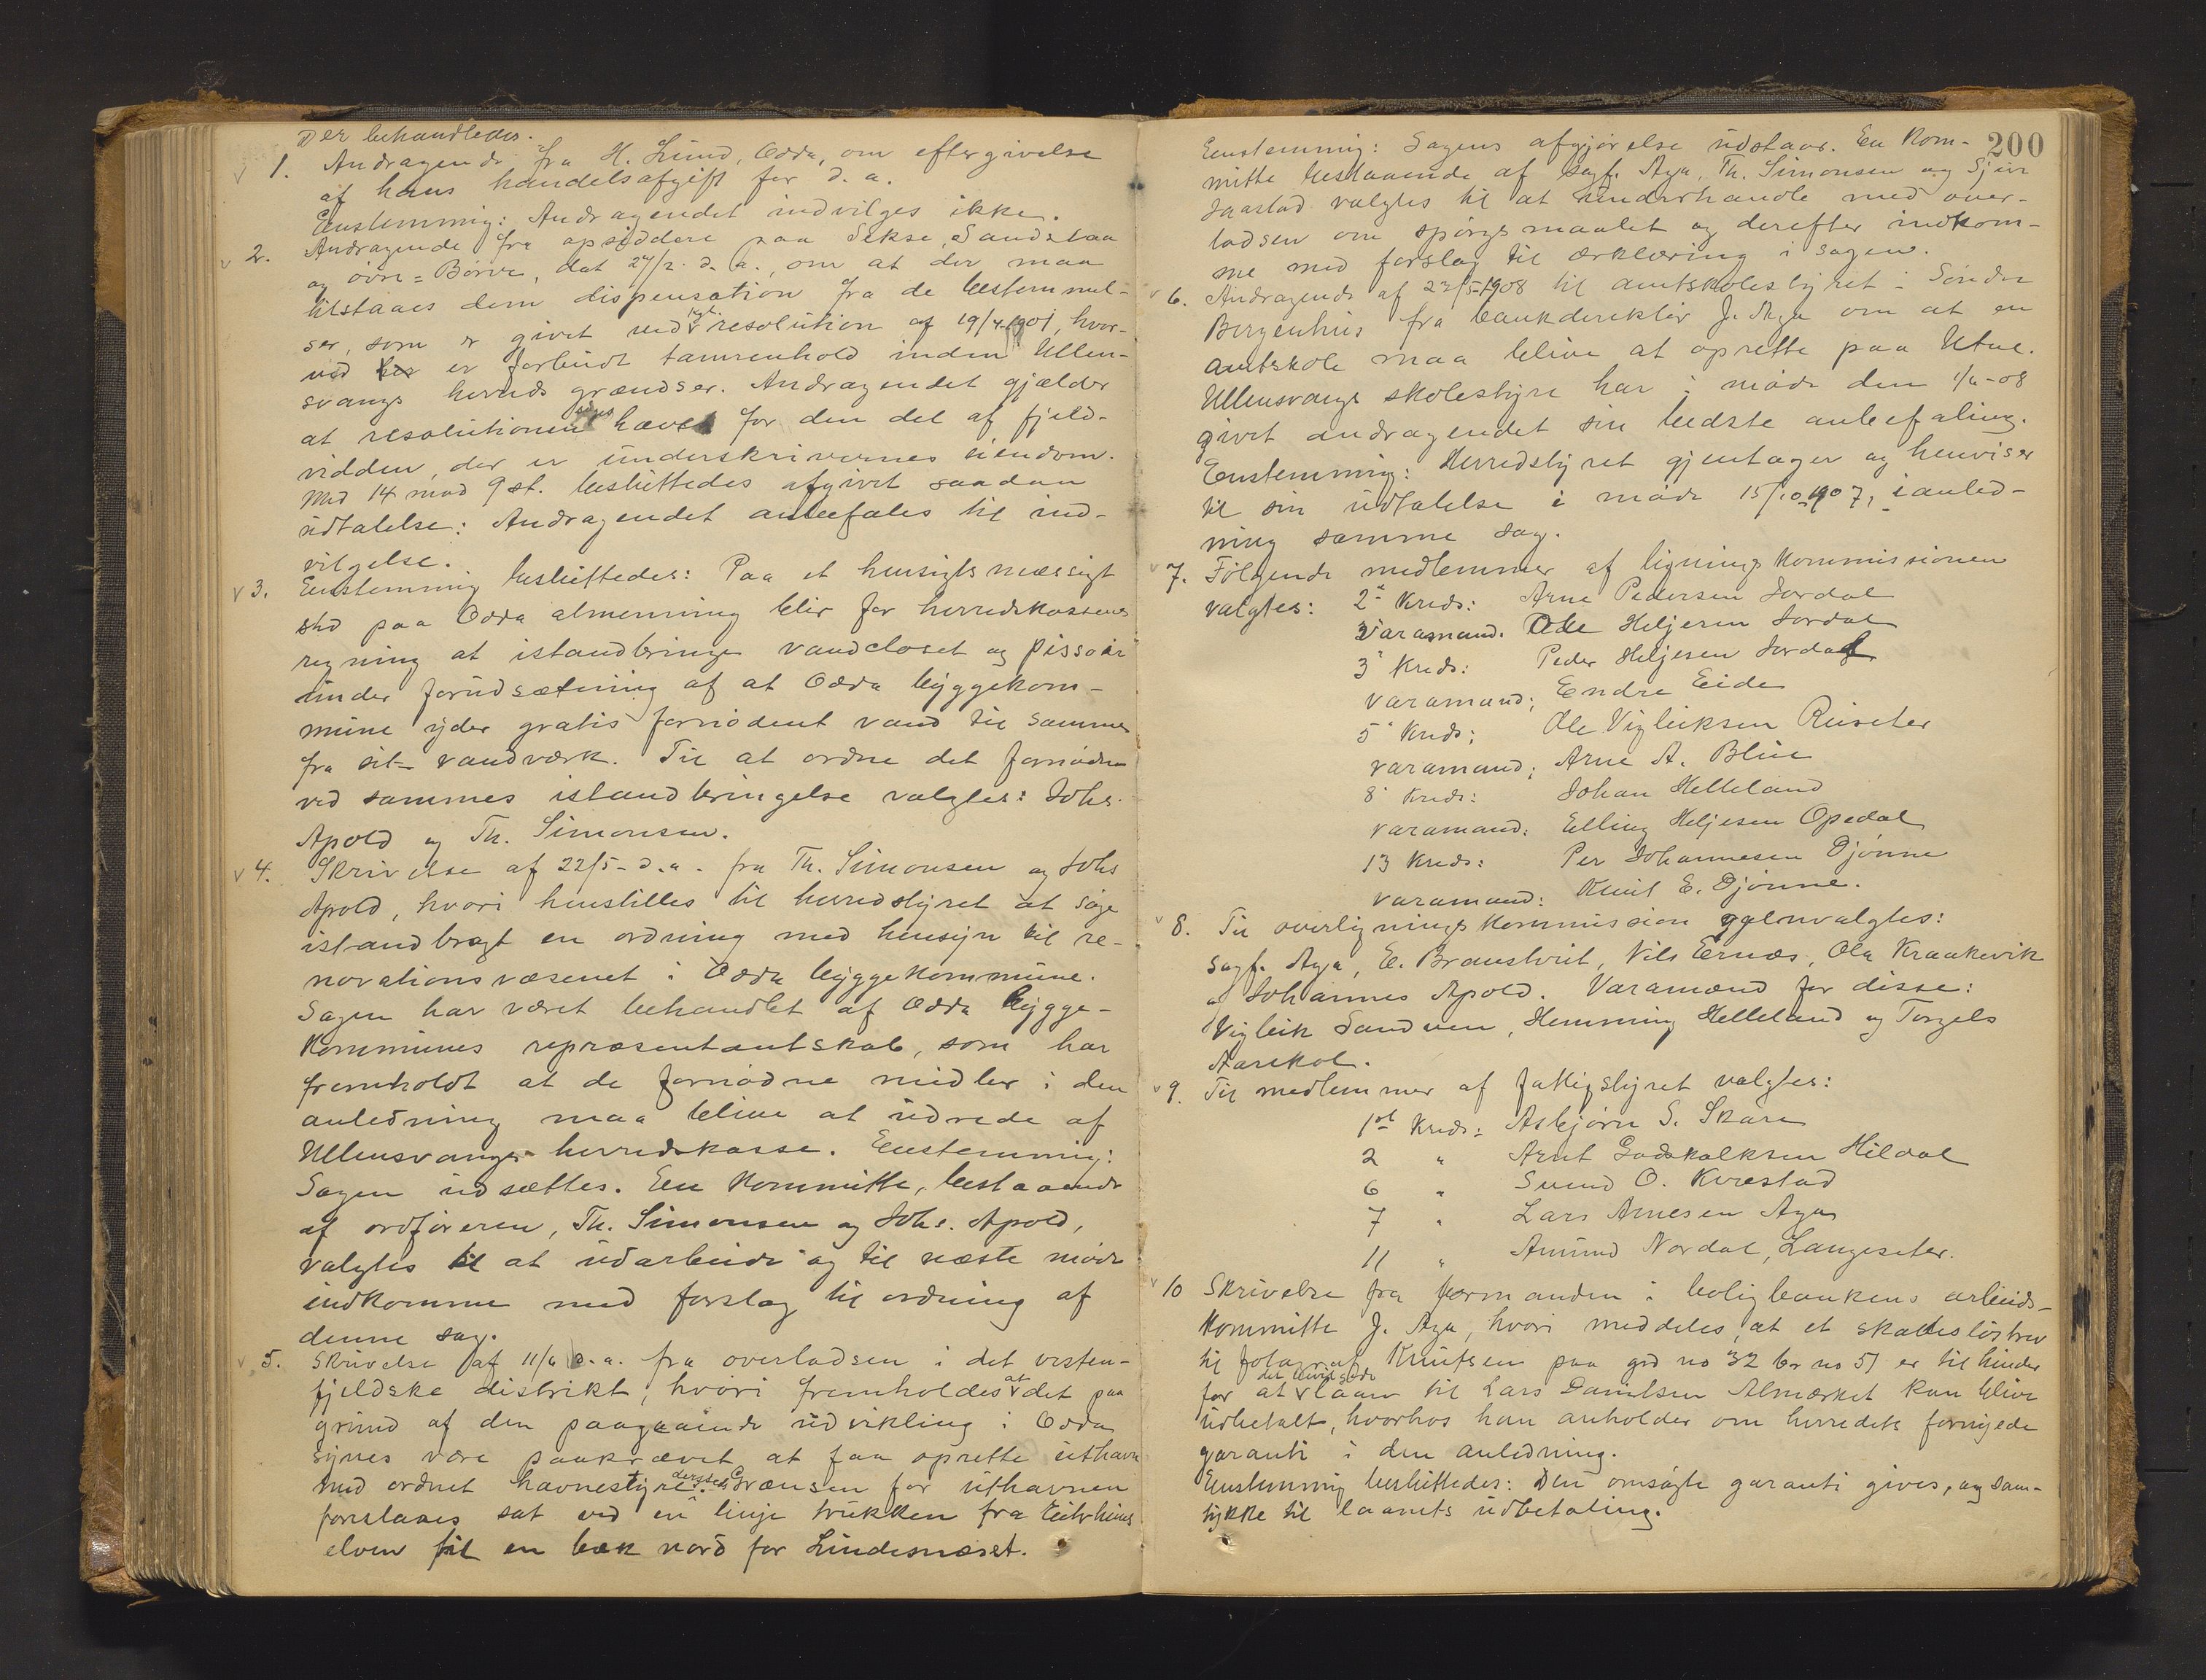 Der behandledes.
1. Andragende fra H. Lund, Odda, om eftergivelse
af hans handelsafgift for d. a.
Enstemmig: Andragendet indvilges ikke.
2. Andragende fra opsiddere paa Sekse, Sandstaa
og övre=Börve, dat 24/2. d. a., om at der maa
tilstaaes dem dispensation fra de bestemmel-
ser, som er givet ved kgl. resolution af 19/4-1901, hvor-
ved er forbudt tamrenhold inden Ullen-
svangs herreds grændser. Andragendet gjælder
at resolutionen hæves for den del af fjeld-
vidden, der er underskrivernes eiendom.
Med 14 mod 9 st. besluttedes afgivet saadan
udtalelse: Andragendet anbefales til ind-
vilgelse.
3. Enstemmig besluttedes: Paa et hensigtsmæssigt
sted paa Odda almenning blir for herredskassens
regning at istandbringe vandcloset og pissoir
under forudsætning af at Odda byggekom-
mune yder gratis fornödent vand til samme
fra sit vandværk. Til at ordne det fornödne
ved sammes istandbringelse valgtes: Johs.
Apold og Th. Simonsen.
4. Skrivelse af 22/5- d. a. fra Th. Simonsen og Johs
Apold, hvori henstilles til herredstyret at söge
istandbragt en ordning med hensyn til re-
novationsvæsenet i Odda byggekommune.
Sagen har været behandlet af Odda bygge-
kommunes repræsentantskab, som har
fremholdt at de fornödne midler i den
anledning maa blive at udrede af
Ullensvangs herredskasse. Enstemmig:
Sagen udsættes. En kommitte, bestaaende
af ordföreren, Th. Simonsen og Johs. Apold,
valgtes til at udarbeide og til næste möde
indkomme med forslag til ordning af
denne sag.
5. Skrivelse af 11/6 d. a. fra overlodsen i det vesten-
fjeldske distrikt, hvori fremholdes at det paa
grund af den paagaaende udvikling i Odda
synes være paakrævet at faa oprette uthavn
med ordnet havnestyre. Grænsen for uthavnen
foreslaaes sat ved en linje trukken fra Eitrheims
elven til en bæk nord for Lindesnæset.
200
Enstemmig: Sagens afgjörelse udstaar. En kom-
mitte bestaaende af sagf. Aga, Th. Simonsen og Sjur
Jaastad valgtes til at underhandle med over-
lodsen om spörgsmaalet og derefter indkom-
me med forslag til erklæring i sagen.
6. Andragende af 22/5-1908 til amtskolestyret i Söndre
Bergenhus fra bankdirektör J. Aga om at en
amtskole maa blive at oprette paa Utne.
Ullensvangs skolestyre har i möde den 1/6-08
givet andragendet sin bedste anbefaling.
Enstemmig: Herredstyret gjentager og henviser
til sin udtalelse i möde 15/10-1907, i anled-
ning samme sag.
7. Fölgende medlemmer af ligningskommissionen
valgtes: 2. kreds: Arne Pedersen Jordal
Varamand. Ole Heljesen Jordal
3. kreds: Peder Heljesen Jordal
varamand: Endre Eide
5. kreds: Ole Vigleiksen Reiseter
varamand: Arne A. Blie
8. kreds: Johan Helleland
varamand: Elling Heljesen Opedal
13 kreds: Per Johannesen Djönne
varamand: Knut E. Djönne.
8. Til overligningskommission gjenvalgtes:
sagf. Aga, E. Braustveit, Nils Ernæs, Ola Kraakevik
og Johannes Apold. Varamænd for disse:
Vigleik Sandven, Hemming Helleland og Torgels
Aarekol.
9. Til medlemmer af fattigstyret valgtes:
1ste kreds: Asbjörn S. Skare
2 " Arnt Godskalksen Hildal
6 " Svend O. Kvestad
7 " Lars Arnesen Aga
11 " Amund Nordal, Langeseter.
10 Skrivelse fra formanden i boligbankens arbeids-
kommitte J. Aga, hvori meddeles, at et skadeslösbrev
til fotograf Knutsen paa grd no 32 br no 51 er til hinder
for at det bevilgede laan til Lars Danielsen Almerket kan blive
udbetalt, hvorhos han anholder om herredets fornyede
garanti i den anledning.
Enstemmig besluttedes: Den omsögte garanti gives, og sam-
tykke til laanets udbetaling.